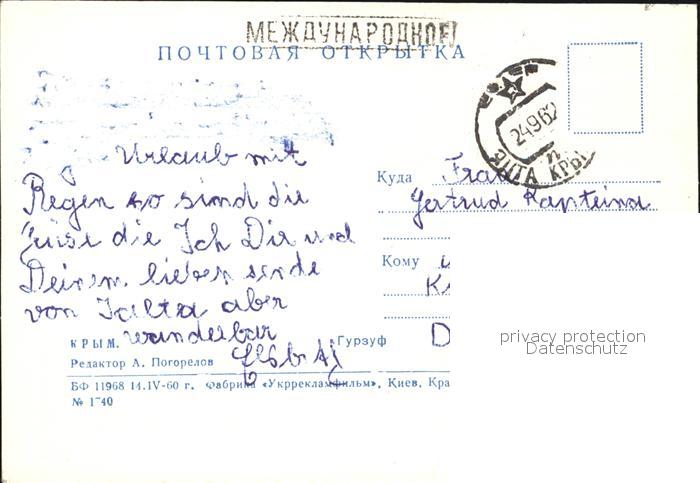 МЕЖДУНАРОДНОЕ
ПОЧТОВАЯ ОТКРЫТКА
24962
ЯЛТА КРЫ
Urlaub mit
Regen so sind die
die Ich Dir und
Deinen lieben sende
von Jalta aber
wunderbar
Куда
Frau
Gertrud Kapteina
Кому
K
D
КРЫМ.
Гурзуф
Редактор А. Погорелов
БФ 11968 14.IV-60 г. Фабрика «Укррекламфильм», Киев, Кра
№ 1-40
privacy protection
Datenschutz